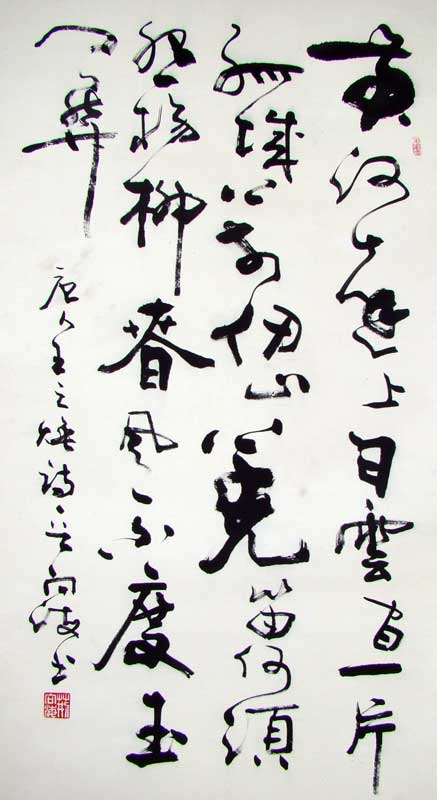 黄河遠上白雲间一片
孤城萬仞山羌笛何須
怨楊柳春風不度玉
门關
唐人王之煥诗 向 书